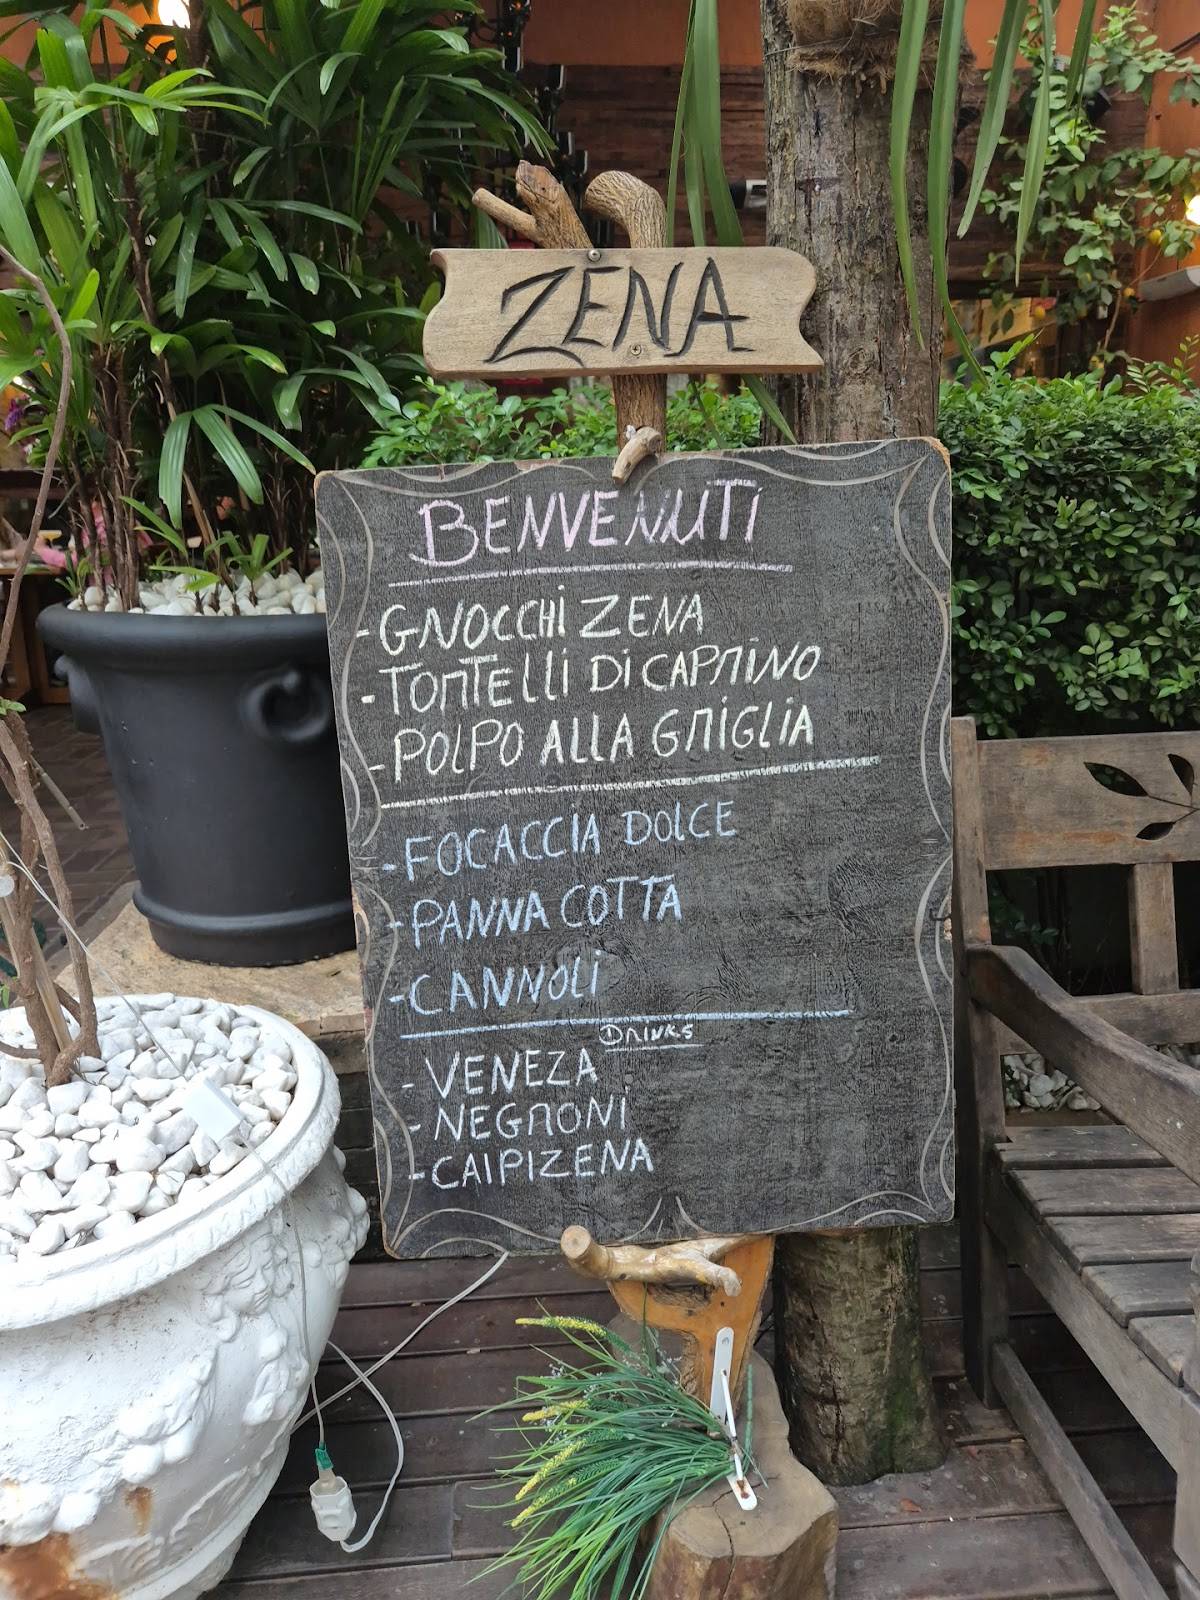 ZENA
BENVENUTI
- GNOCCHI ZENA
- TORTELLI DI CAPRINO
- POLPO ALLA GRIGLIA
- FOCACCIA DOLCE
- PANNA COTTA
- CANNOLI
DRINKS
- VENEZA
- NEGRONI
- CAIPIZENA